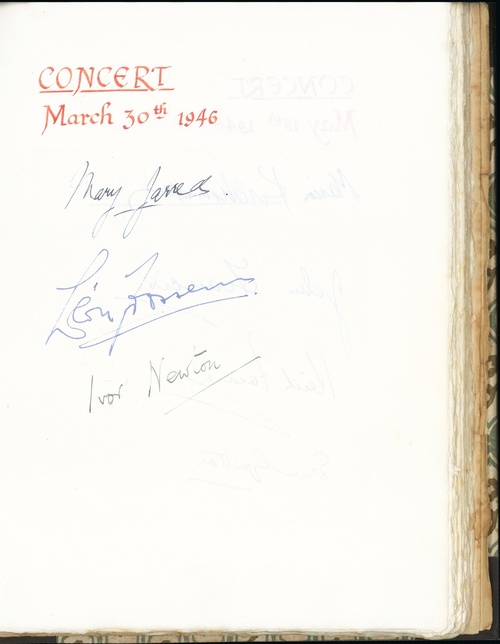 CONCERT
March 30th 1946
Mary Jarred.
Léon Goossens.
Ivor Newton